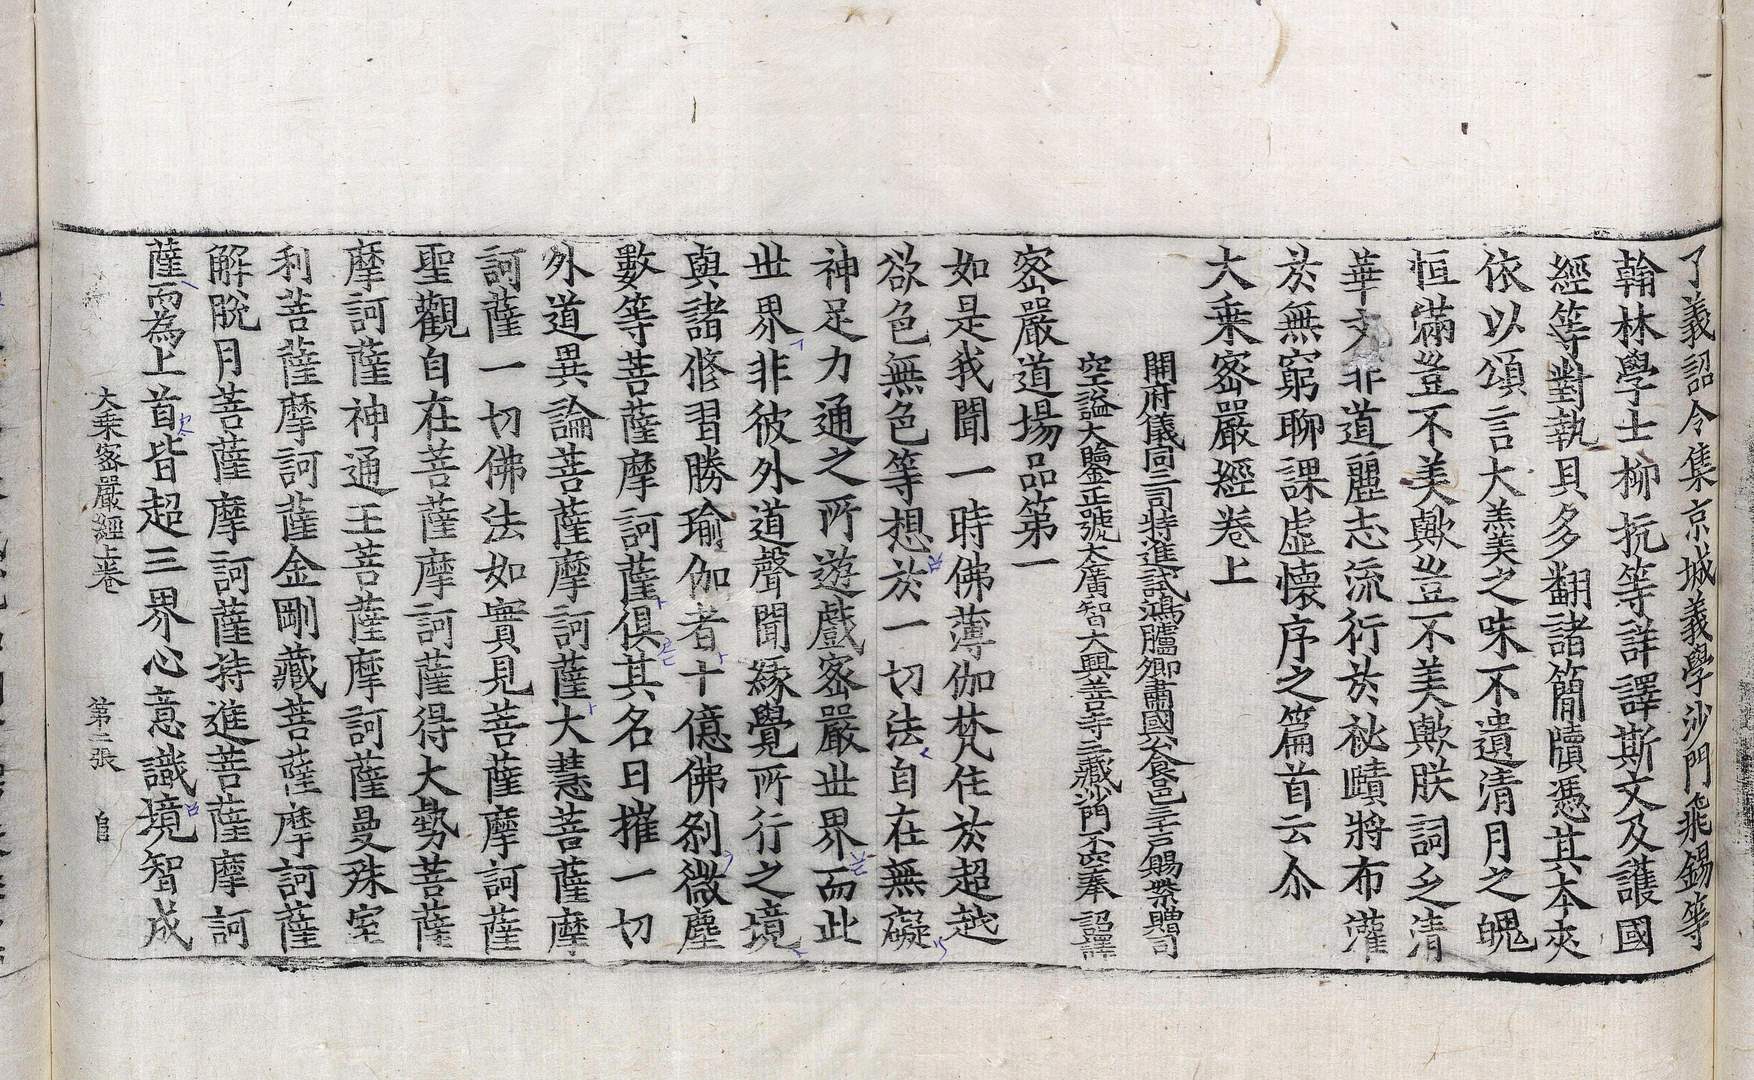 了義詔令集京城義學沙門飛錫等
翰林學士柳抗等詳譯斯文及護國
經等對執貝多翻諸簡牘憑其本夾
依以頌言大羹之味不遺清月之魄
恒滿豈不美歟豈不美歟朕詞乏清
華文非道麗志流行於祕賾將布灌
於無窮聊課虛懷序之篇首云尒
大乘密嚴經卷上
開府儀同三司特進試鴻臚卿肅國公食邑三千戶賜紫贈司
空謚大鑒正號大廣智大興善寺三藏沙門不空奉 詔譯
密嚴道場品第一
如是我聞一時佛薄伽梵住於超越
欲色無色等想於一切法自在無礙
神足力通之所遊戲密嚴世界而此
世界非彼外道聲聞緣覺所行之境
與諸修習勝瑜伽者十億佛剎微塵
數等菩薩摩訶薩俱其名曰摧一切
外道異論菩薩摩訶薩大慧菩薩摩
訶薩一切佛法如實見菩薩摩訶薩
聖觀自在菩薩摩訶薩得大勢菩薩
摩訶薩神通王菩薩摩訶薩曼殊室
利菩薩摩訶薩金剛藏菩薩摩訶薩
解脫月菩薩摩訶薩持進菩薩摩訶
薩而為上首皆超三界心意識境智成
大乘密嚴經上卷 第二張 自